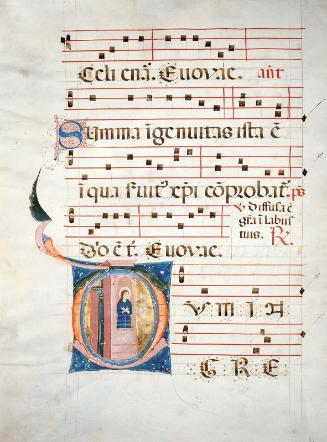 Celi enā. Evovae. ant̄
Summa īgenuitas ista ē
ī qua ẜuit᷒ xp̄i cōprobat̄. ps̄
℣ diffusa ē
grā ī labiis
tuis. ℟
Dō ē t̄. Evovae.
O VM IA
GRE